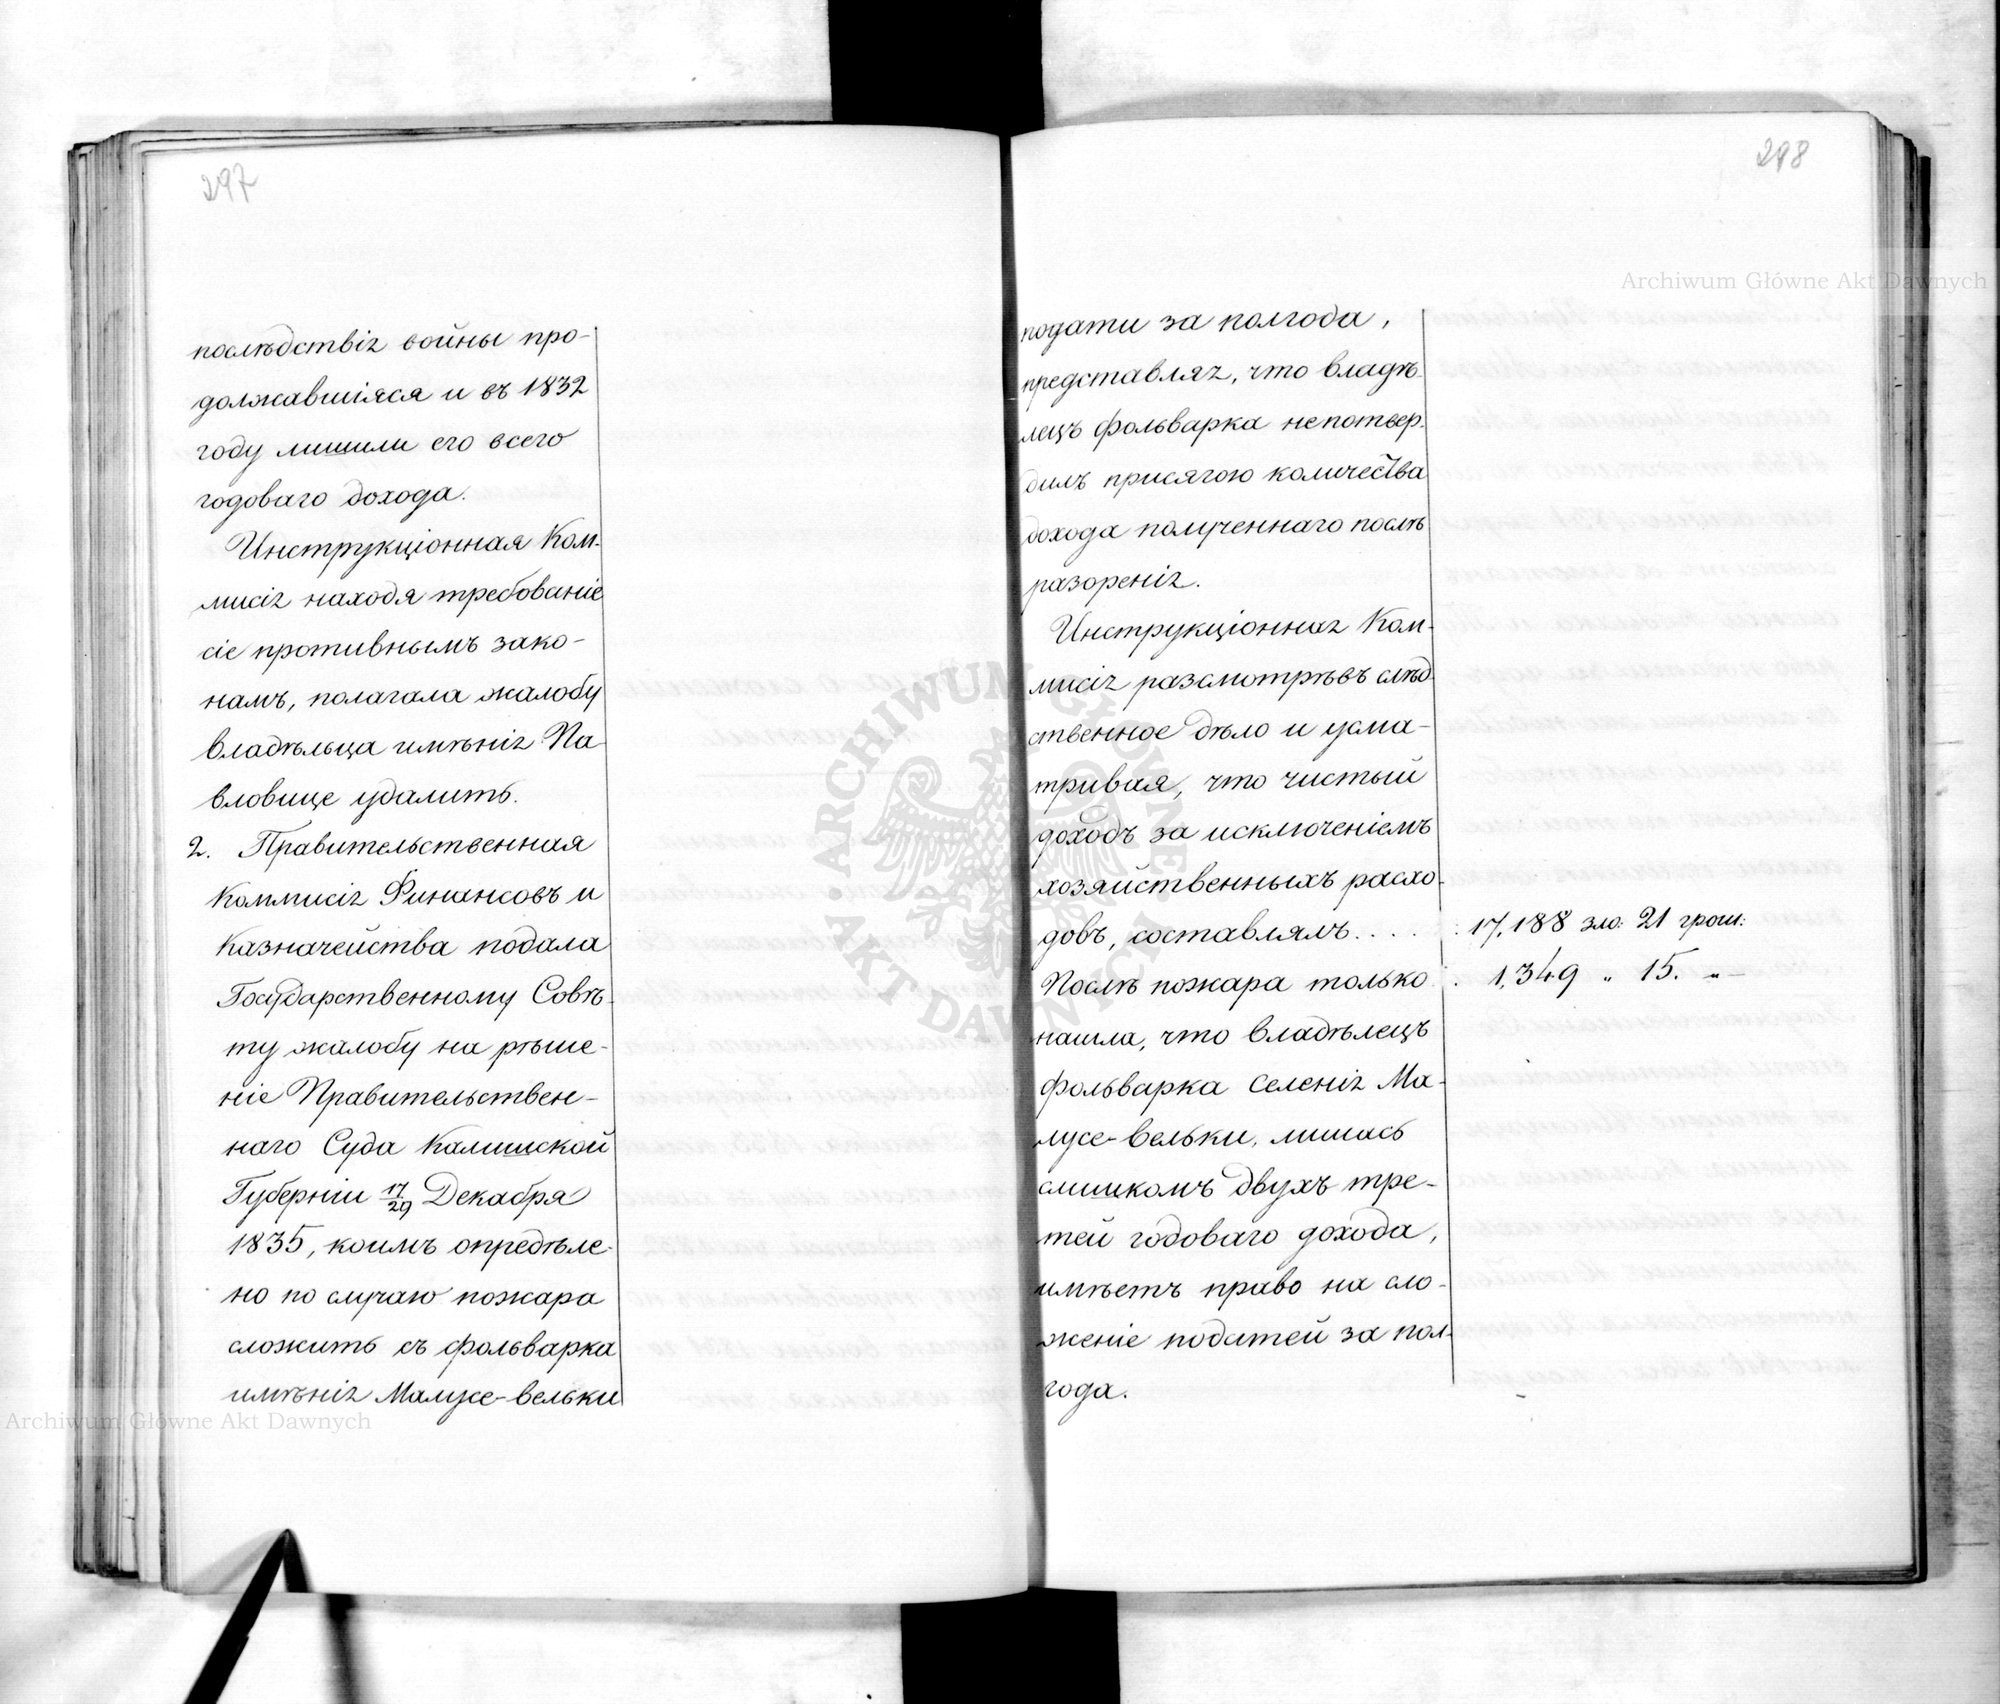 297
послѣдствія войны про-
должавшіяся и въ 1832
году лишили его всего
годоваго дохода.
Инструкціонная Ком-
мисія находя требованіе
сіе противнымъ зако-
намъ, полагала жалобу
владѣльца имѣнія Па-
вловице удалить.
2. Правительственная
Коммисія Финансовъ и
Казначейства подала
Государственному Совѣ-
ту жалобу на рѣше-
ніе Правительствен-
наго Суда Калишской
Губерніи 17/29 Декабря
1835, коимъ опредѣле-
но по случаю пожара
сложить съ фольварка
имѣнія Малусе-вельки
298
подати за полгода,
представляя, что владѣ-
лецъ фольварка непотвер-
дилъ присягою количества
дохода полученнаго послѣ
разоренія.
Инструкціонная Ком-
мисія разсмотрѣвъ слѣд-
ственное дѣло и усма-
тривая, что чистый
доходъ за исключеніемъ
хозяйственныхъ расхо-
довъ, составлялъ.... 17,188 зло: 21 грош:
Послѣ пожара только . 1,349 „ 15. „
нашла, что владѣлецъ
фольварка селенія Ма-
лусе-вельки, лишась
слишкомъ двухъ тре-
тей годоваго дохода,
имѣетъ право на сло-
женіе податей за пол-
года.
Archiwum Główne Akt Dawnych
ARCHIWUM GŁÓWNE AKT DAWNYCH
Archiwum Główne Akt Dawnych